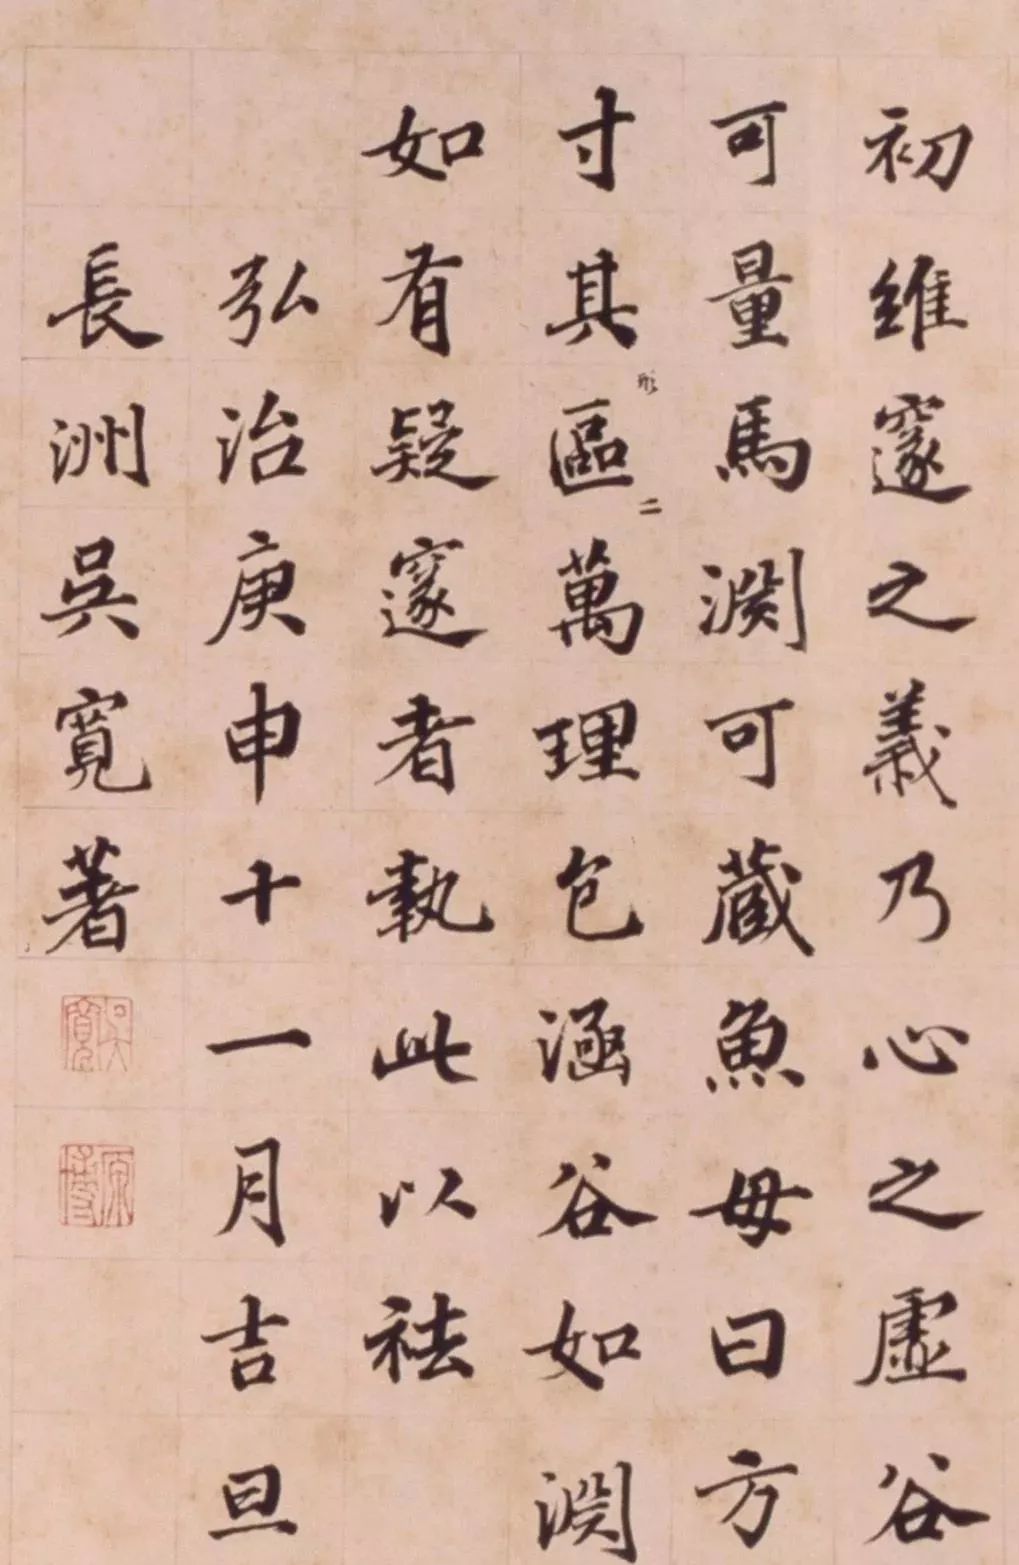 初維邃之義乃心之虛谷
可量馬淵可藏魚毋曰方
寸其區萬理包涵谷如淵
形
二
如有疑邃者執此以祛
弘治庚申十一月吉旦
長洲吳寬著
吳寬
原博